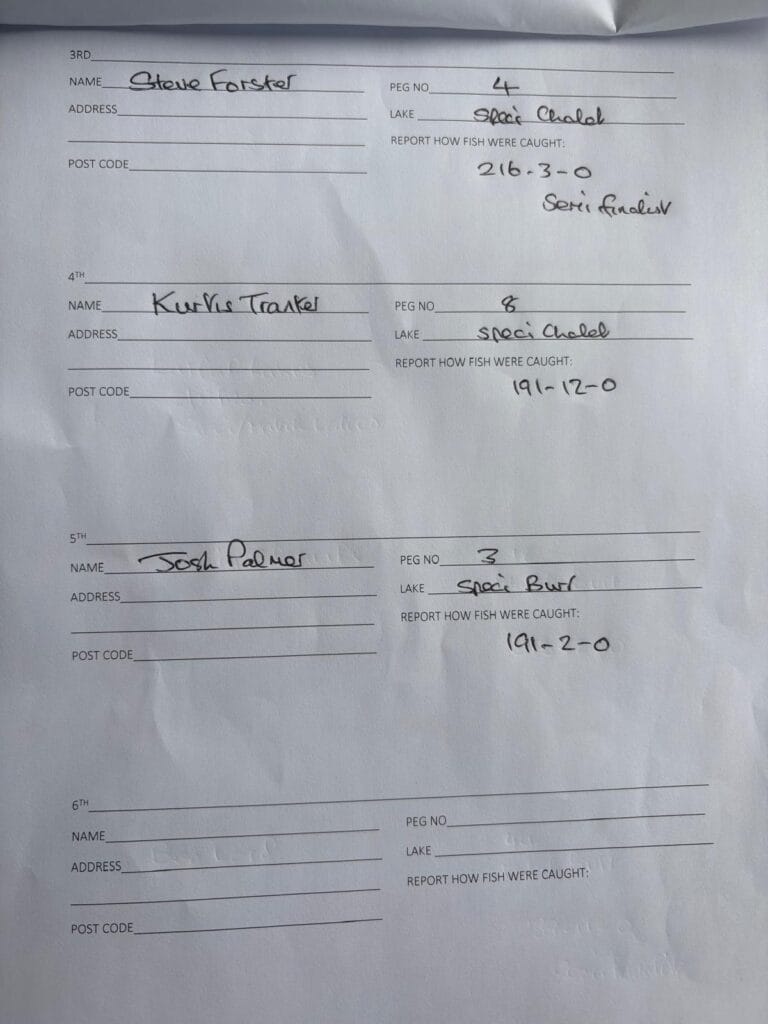 3RD
NAME Steve Forster PEG NO 4
ADDRESS LAKE Speci Chaleb
REPORT HOW FISH WERE CAUGHT:
POST CODE 216-3-0
Semi finalist
4TH
NAME Kurtis Tranter PEG NO 8
ADDRESS LAKE Speci Chaleb
REPORT HOW FISH WERE CAUGHT:
POST CODE 191-12-0
5TH
NAME Josh Palmer PEG NO 3
ADDRESS LAKE Speci Burl
REPORT HOW FISH WERE CAUGHT:
POST CODE 191-2-0
6TH
NAME PEG NO
ADDRESS LAKE
REPORT HOW FISH WERE CAUGHT:
POST CODE